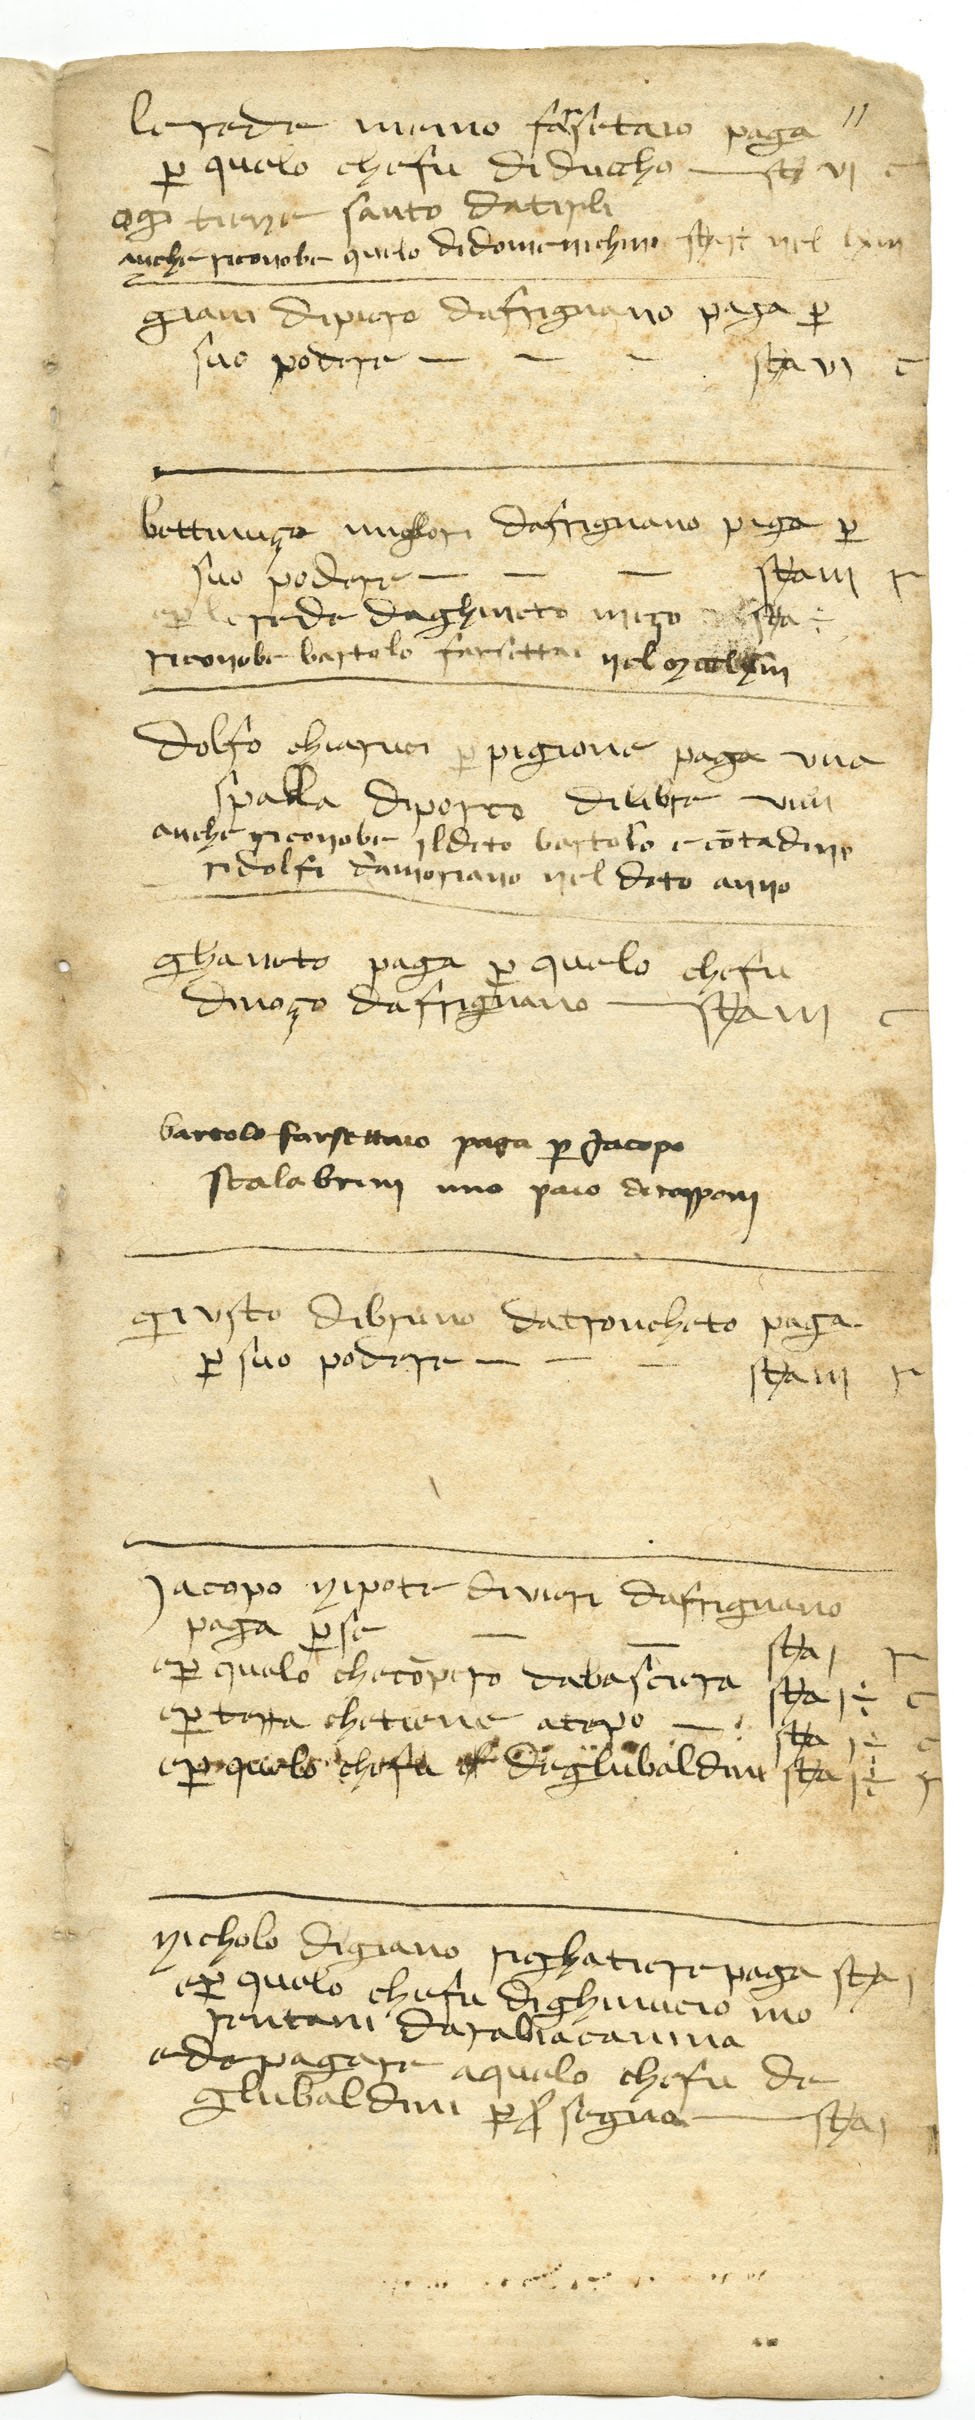 11
lerede memo farsetaio paga
p quelo chefu diduccho — sta vi c
ogi tiene santo datirli
anche riconobe quelo didomenichino nel lxiii
giani dipiero dafrignano paga p
suo podere — — - sta vi c
bettinuço migliori dafrignano paga p
suo podere — — — sta iii r
ep lerede daghineto mezo sta
riconobe bartolo farsettai nel
dolfo chiaruci p pigione paga una
spalla diporco dilibre viiii
anche riconobe ildeto bartolo e cōtadino
ridolfi damoriano nel deto anno
ghaneto paga p quelo chefu
dinoço dafrignano — sta iii c
bartolo farsettaio paga p Jacopo
scalabrini uno paio dicapponi
giusto dibruno datroncheto paga
p suo podere — — - sta iii r
Jacopo nipote divieri dafrignano
paga p se — — sta i r
ep quelo checōpero dabasciera sta i c
ep terra chetiene atepo — sta i c
ep quelo chefu deglubaldini sta i r
nicholo digiano righatiere paga sta i
ep quelo chefu dighinucio mo
rentani darabiacanina
edepagare aquelo chefu de
glubaldini p segno — sta i